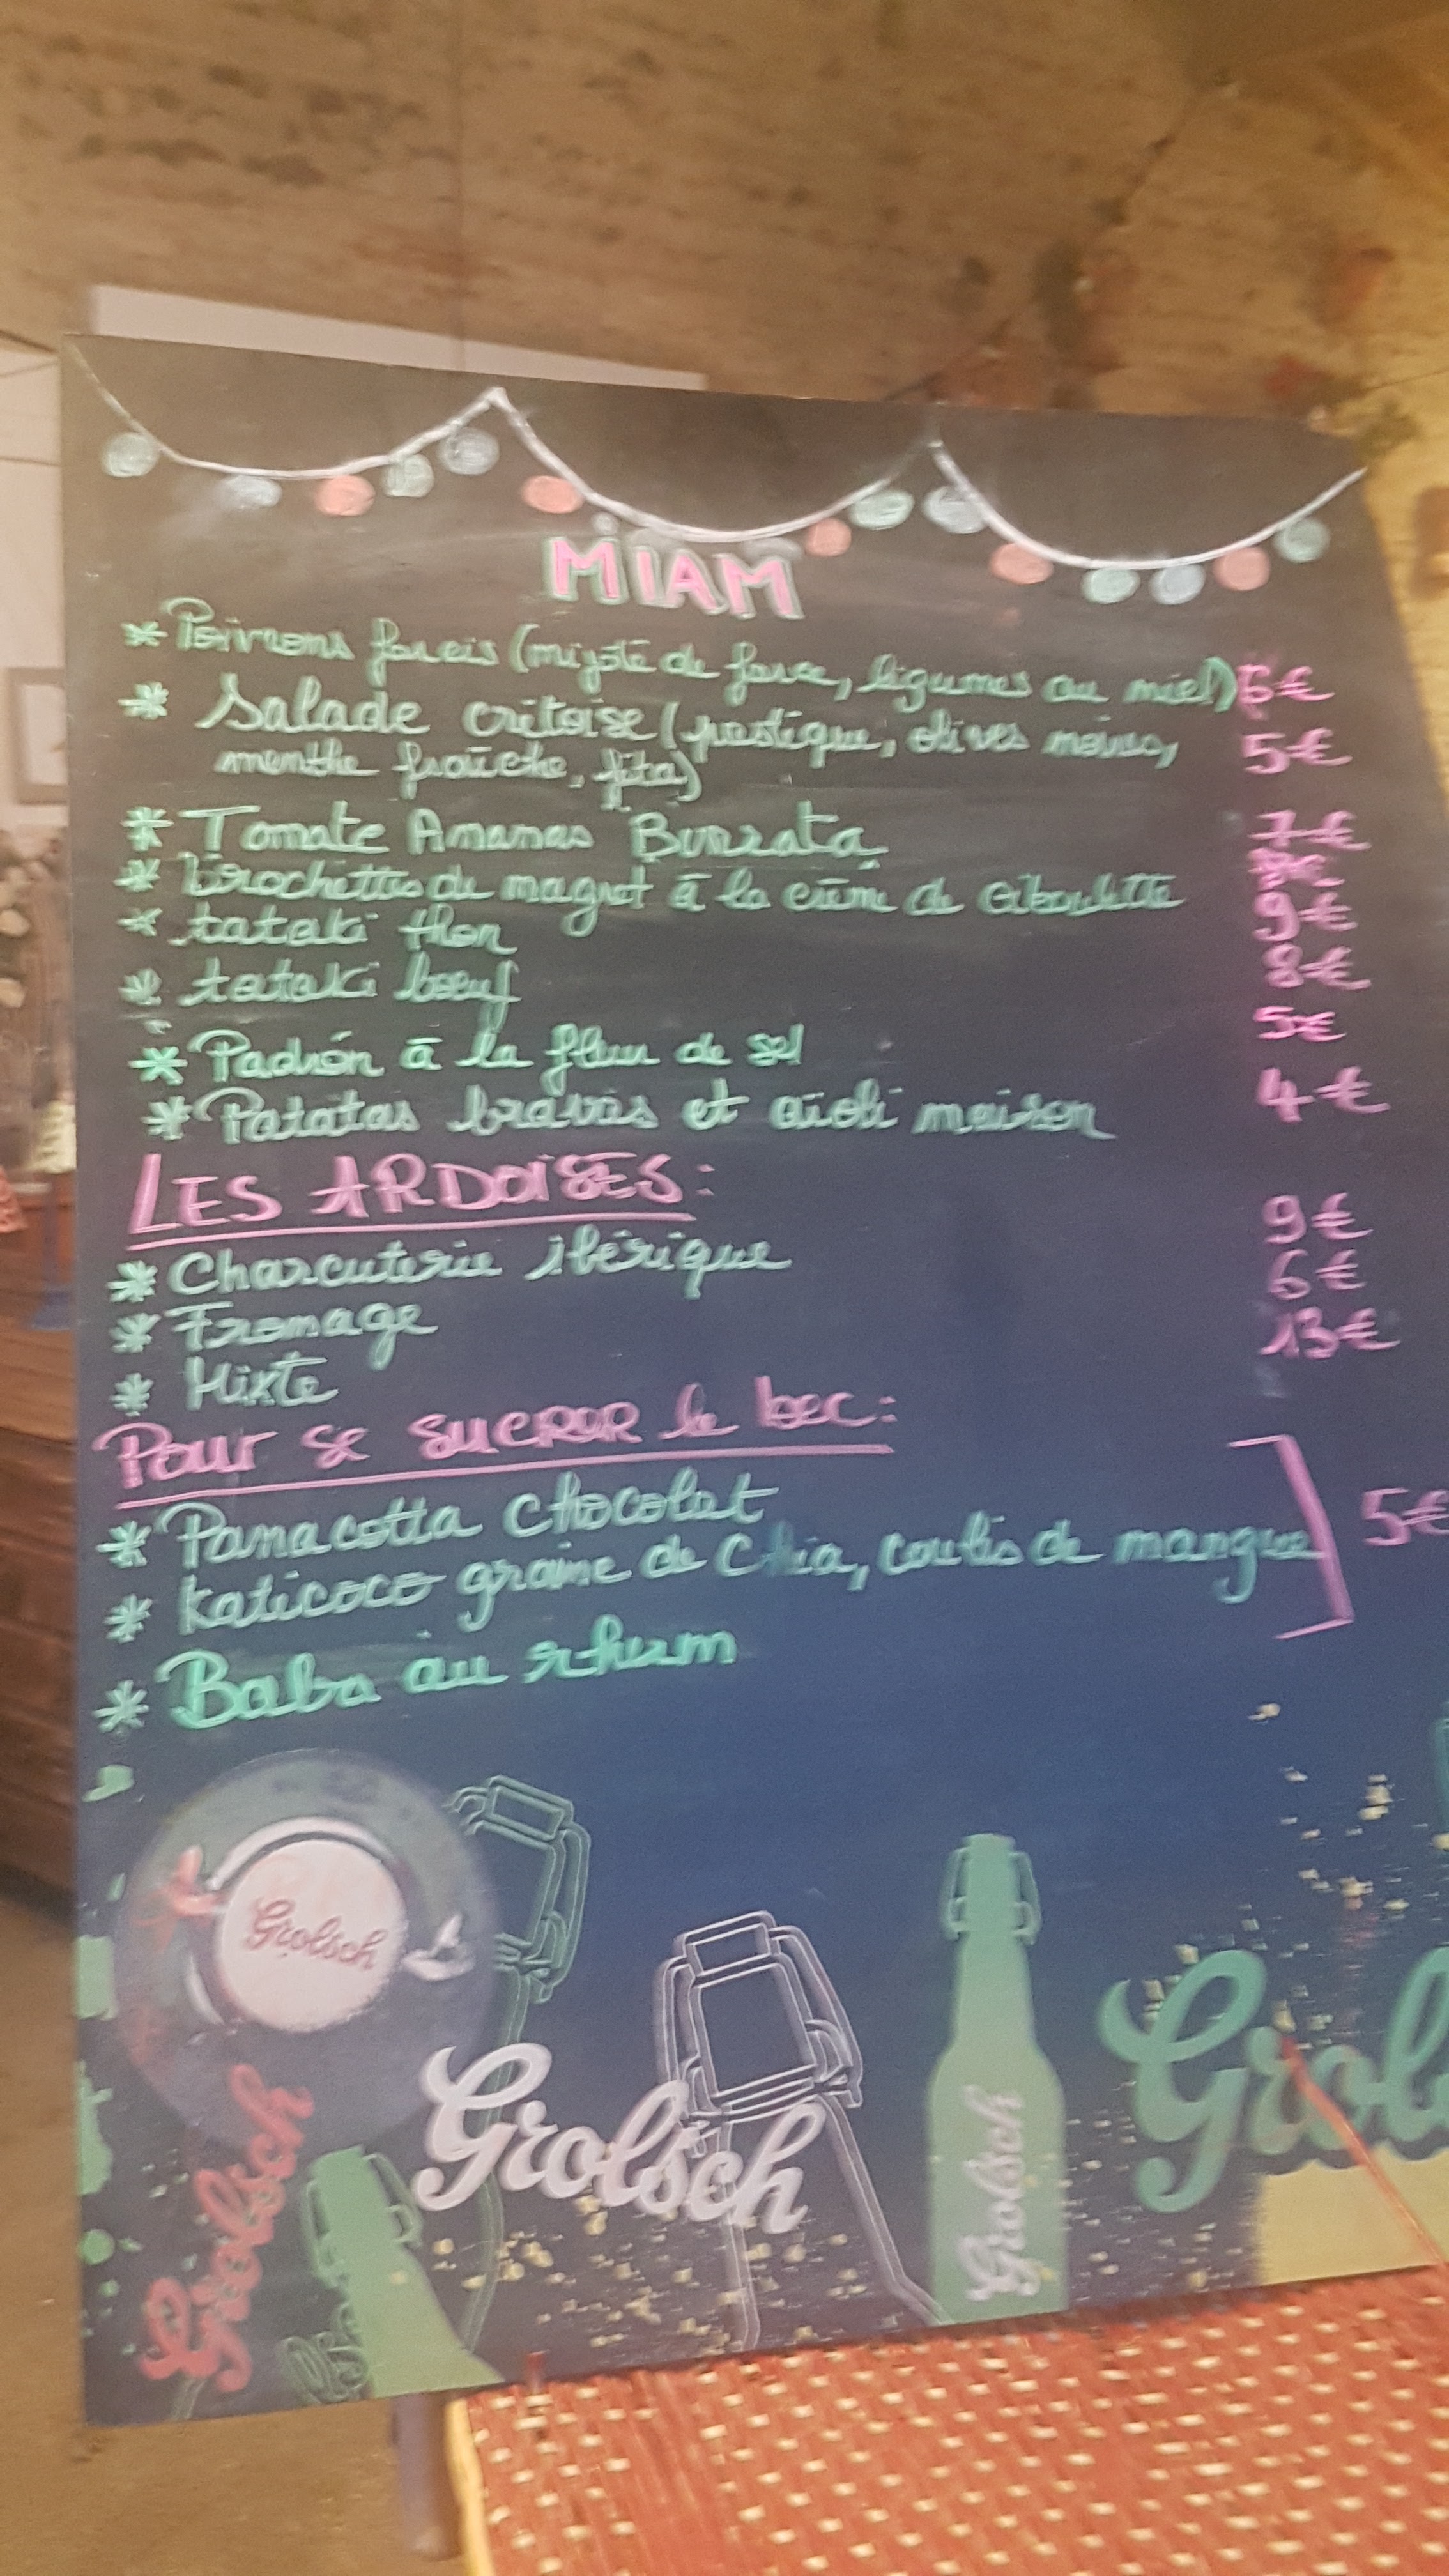 MIAM
* Poivrons farcis (mijoté de farce, légumes au miel) 6€
* Salade crétoise (pastèque, olives noires, 5€
menthe fraîche, féta)
* Tomate Ananas Burrata 7€
* Brochettes de magret à la crème de ciboulette
* tataki thon 9€
* tataki bœuf 8€
* Padrón à la fleur de sel 5€
* Patatas bravas et aïoli maison 4€
LES ARDOISES:
* Charcuterie ibérique 9€
* Fromage 6€
* Mixte 13€
Pour se SUCRER le bec:
* Panacotta chocolat
* Katicoco graine de Chia, coulis de mangue 5€
* Baba au rhum
Grolsch
Grolsch
Grolsch
Grolsch
Grol